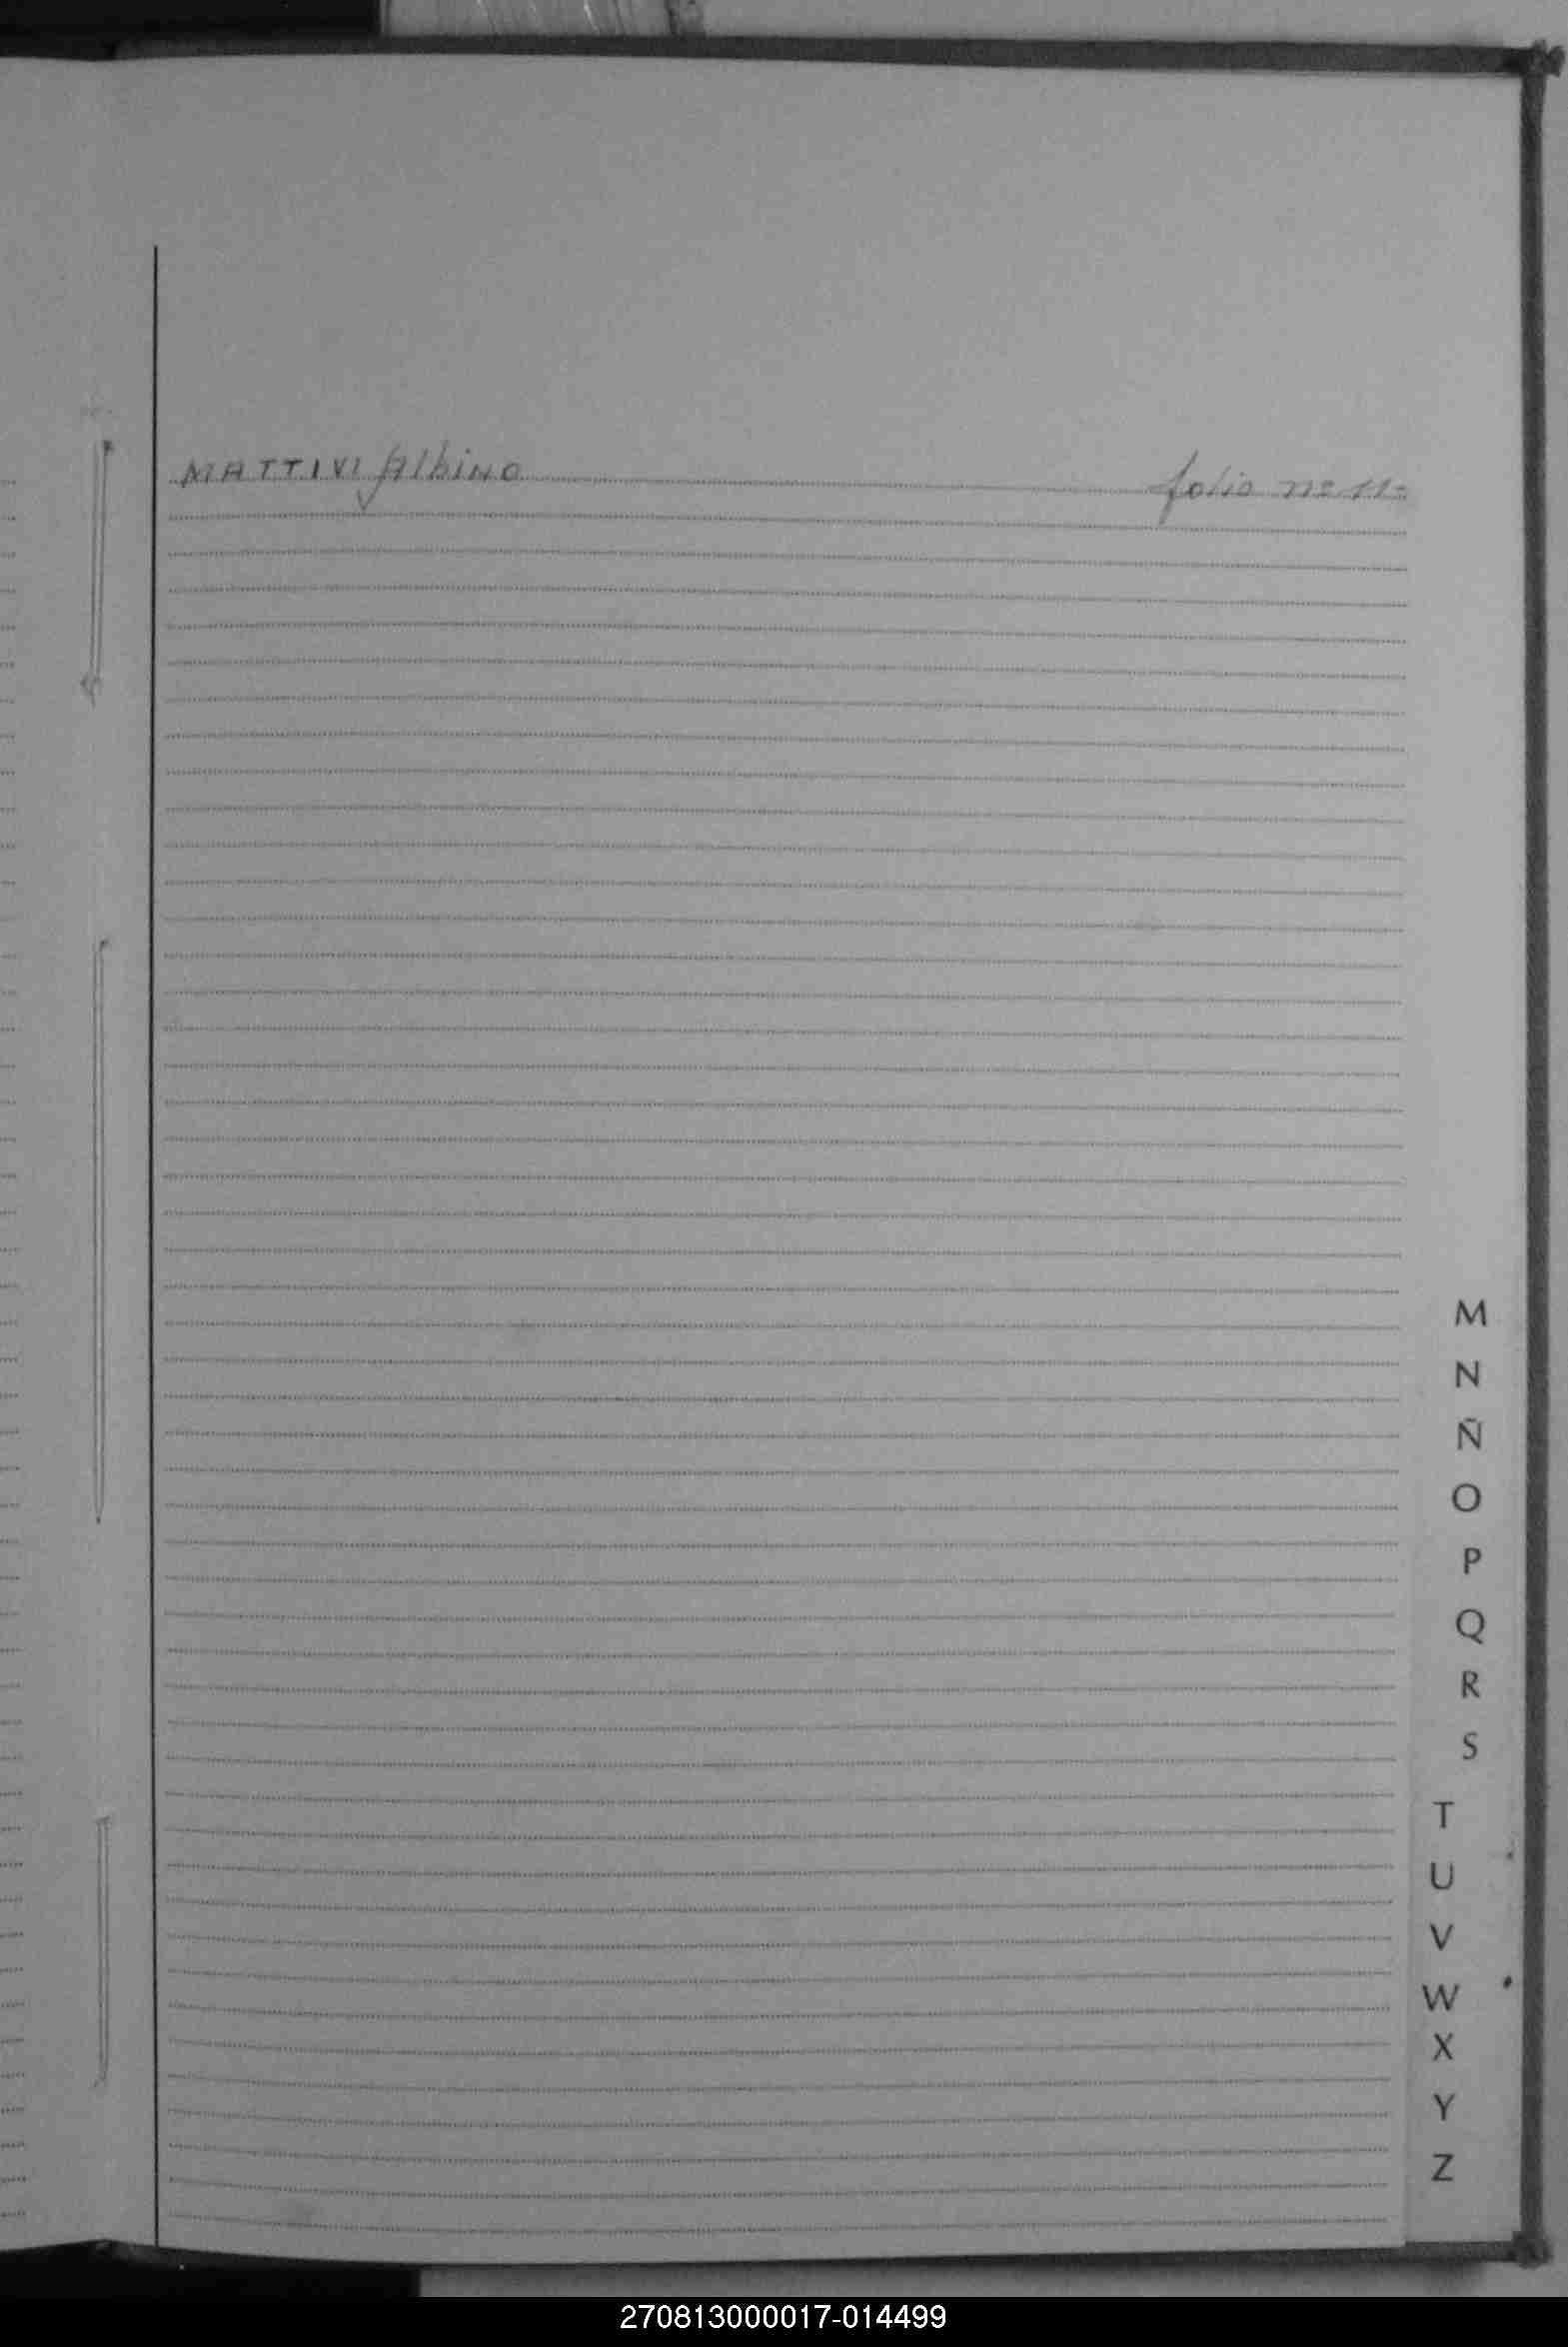 MATTIVI Albino folio nº 11=
M
N
Ñ
O
P
Q
R
S
T
U
V
W
X
Y
Z
270813000017-014499